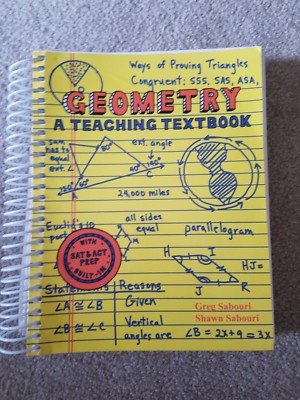 Ways of Proving Triangles
Congruent: SSS, SAS, ASA,
GEOMETRY
A TEACHING TEXTBOOK
sum
has to
equal
ext. ∠
ext. angle
80°
60°
40°
140°
120°
A
C
24,000 miles
Euclid's 10
all sides
equal
parallelogram
WITH
SAT & ACT
PREP
BUILT-IN
H
I
J
R
HJ=
Statements
Reasons
∠A ≅ ∠B
Given
Greg Sabouri
Shawn Sabouri
∠B ≅ ∠C
Vertical
angles are
∠B = 2x+9 = 3x